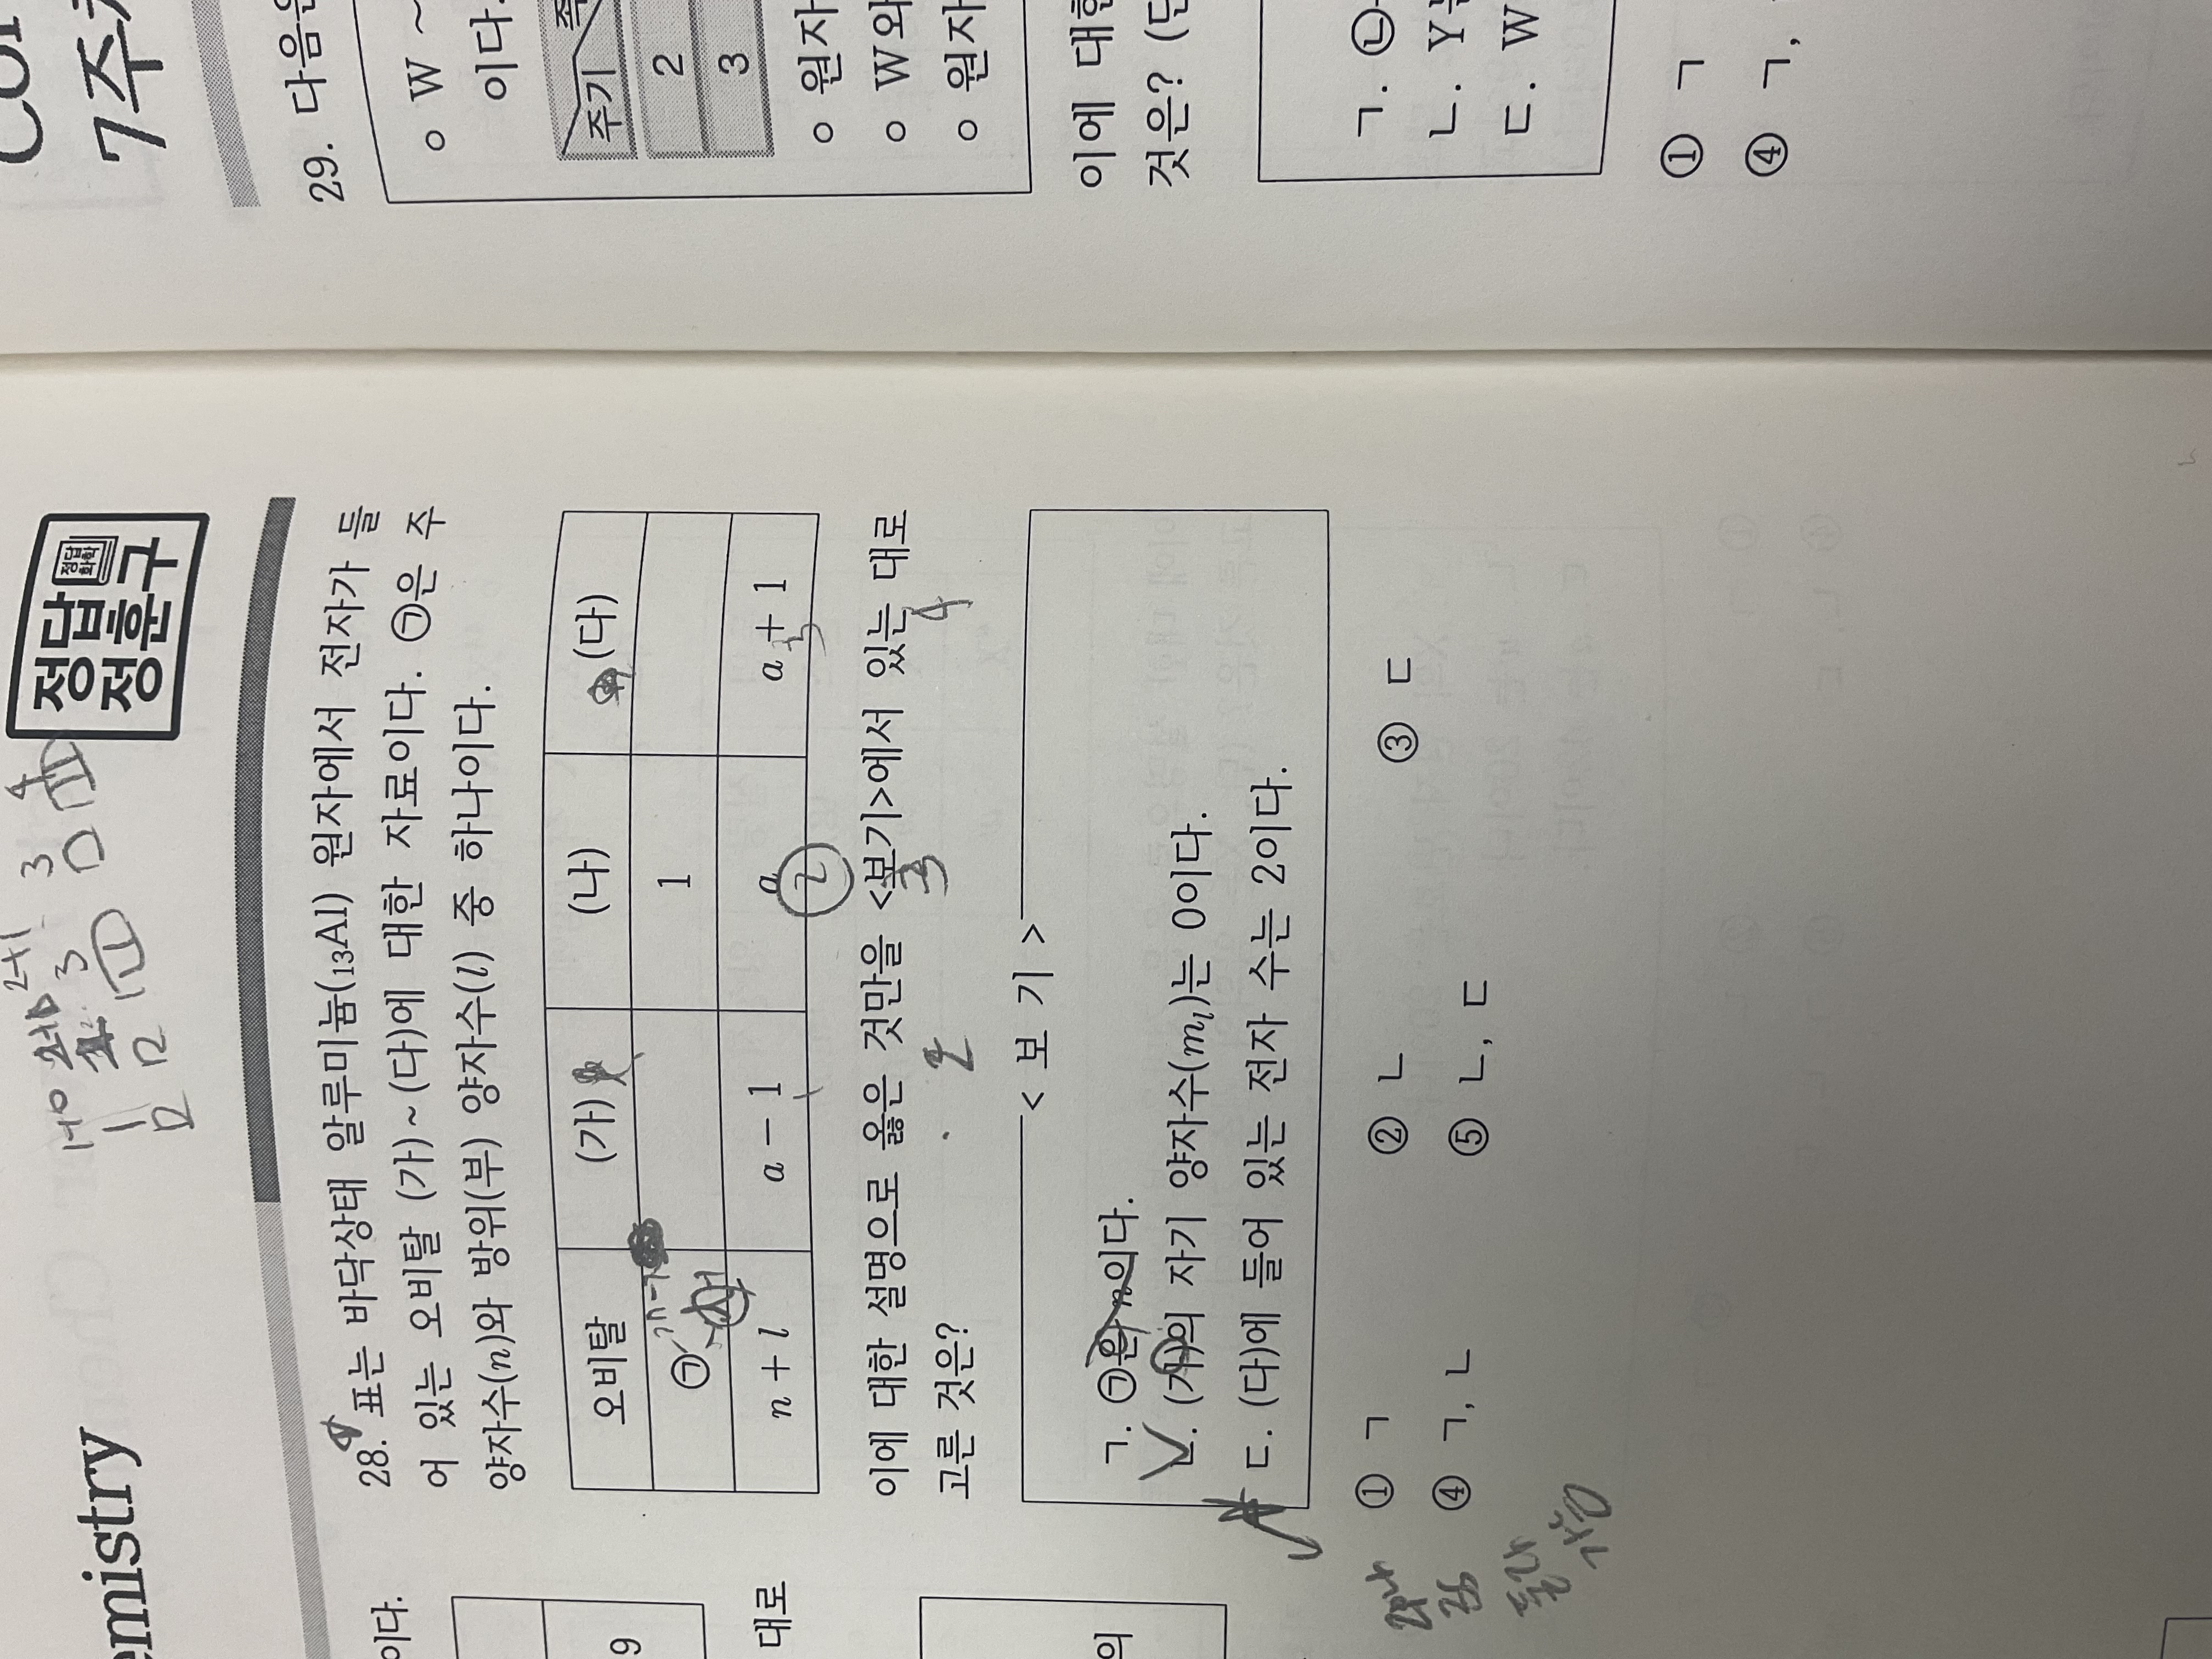 emistry
정답
정훈구
정답
화학
28. 표는 바닥상태 알루미늄(₁₃Al) 원자에서 전자가 들
어 있는 오비탈 (가)~(다)에 대한 자료이다. ㉠은 주
양자수(n)와 방위(부) 양자수(l) 중 하나이다.
오비탈 (가) (나) (다)
㉠ 1
n + l a − 1 a a + 1
2 3
2 3 4
이에 대한 설명으로 옳은 것만을 <보기>에서 있는 대로
고른 것은?
< 보 기 >
ㄱ. ㉠은 n이다.
ㄴ. (가)의 자기 양자수(mₗ)는 0이다.
ㄷ. (다)에 들어 있는 전자 수는 2이다.
① ㄱ ② ㄴ ③ ㄷ
④ ㄱ, ㄴ ⑤ ㄴ, ㄷ
이다.
9
대로
의
7주
29. 다음은
○ W ~
이다.
주기
2
3
○ 원자
○ W와
○ 원자
이에 대한
것은? (단
ㄱ. ㉡
ㄴ. Y
ㄷ. W
① ㄱ
④ ㄱ,